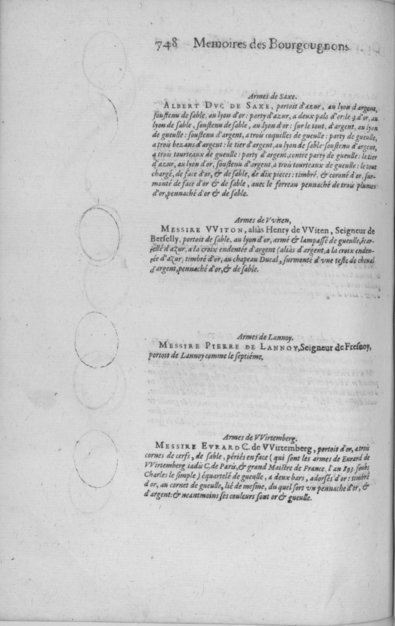 748 Memoires des Bourgougnons
Armes de Saxe.
ALBERT DVC DE SAXE, portoit d'azur, au lyon d'argent,
soustenu de sable, au lyon d'or: party d'azur, a deux pals d'or: le 3. d'or, au
lyon de sable, soustenu de sable, au lyon d'or: sur le tout, d'argent, au lyon
de gueulle: soustenu d'argent, a trois coquilles de gueulle: party de gueulle,
a trois bezans d'argent: le tier d'argent, au lyon de sable soustenu d'argent,
a trois tourteaux de gueulle: party d'argent, contre party de gueulle: le tier
d'azur, au lyon d'or, soustenu d'argent, a trois tourteaux de gueulle: le tout
chargé, de face d'or, & de sable, de dix pieces: timbré, & coroné d'or, sur-
monté de face d'or & de sable, auec le forreau pennaché de trois plumes
d'or, pennaché d'or & de sable.
Armes de Vviten,
MESSIRE VVITON, aliàs Henry de VViten, Seigneur de
Berselly, portoit de sable, au lyon d'or, armé & lampassé de gueulle, écar-
tellé d'azur, a la croix endentée d'argent (aliàs d'argent, a la croix enden-
tée d'azur, timbré d'or, au chapeau Ducal, surmonté d'vne teste de cheual
d'argent, pennaché d'or, & de sable.
Armes de Lannoy.
MESSIRE PIERRE DE LANNOY, Seigneur de Fresnoy,
portoit de Lannoy comme le septiéme.
Armes de VVirtemberg.
MESSIRE EVRARD C. de VVirtemberg, portoit d'or, a trois
cornes de cerfs, de sable, périés en face (qui sont les armes de Eurard de
VVirtemberg iadis C. de Paris, & grand Maistre de France, l'an 893 soubs
Charles le simple) équartelé de gueulle, a deux bars, adorsés d'or: timbré
d'or, au cornet de gueulle, lié de mesme, du quel sort vn pennache d'or, &
d'argent: & neantmoins ses couleurs sont or & gueulle.